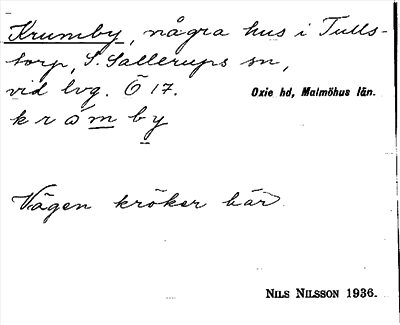 Krumby, några hus i Tulls-
torp, S. Sallerups sn,
vid lvg. Ö 17. Oxie hd, Malmöhus län.
k r ö́ m b y
Vägen kröker här
NILS NILSSON 1936.